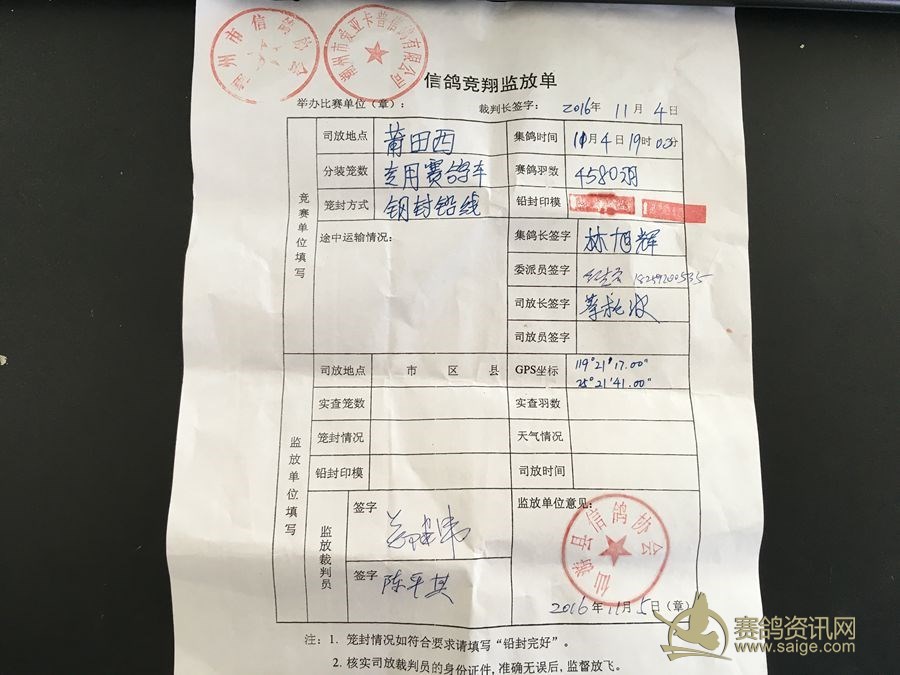 潮州市信鸽协会
潮州市爱亚卡普信鸽有限公司
信鸽竞翔监放单
举办比赛单位(章): 裁判长签字: 2016年 11月 4日
竞赛单位填写
司放地点 莆田西 集鸽时间 11月4日19时00分
分装笼数 专用赛鸽车 赛鸽羽数 4580羽
笼封方式 钢封铅线 铅封印模
途中运输情况: 集鸽长签字 林旭辉
委派员签字
司放长签字
司放员签字
监放单位填写
司放地点 市 区 县 GPS坐标 119°21'17.00"
25°21'41.00"
实查笼数 实查羽数
笼封情况 天气情况
铅封印模 司放时间
监放裁判员
签字 监放单位意见:
仙游县信鸽协会
签字 陈平其
2016年11月5日(章)
注: 1. 笼封情况如符合要求请填写“铅封完好”。
2. 核实司放裁判员的身份证件,准确无误后,监督放飞。
赛鸽资讯网
www.saige.com